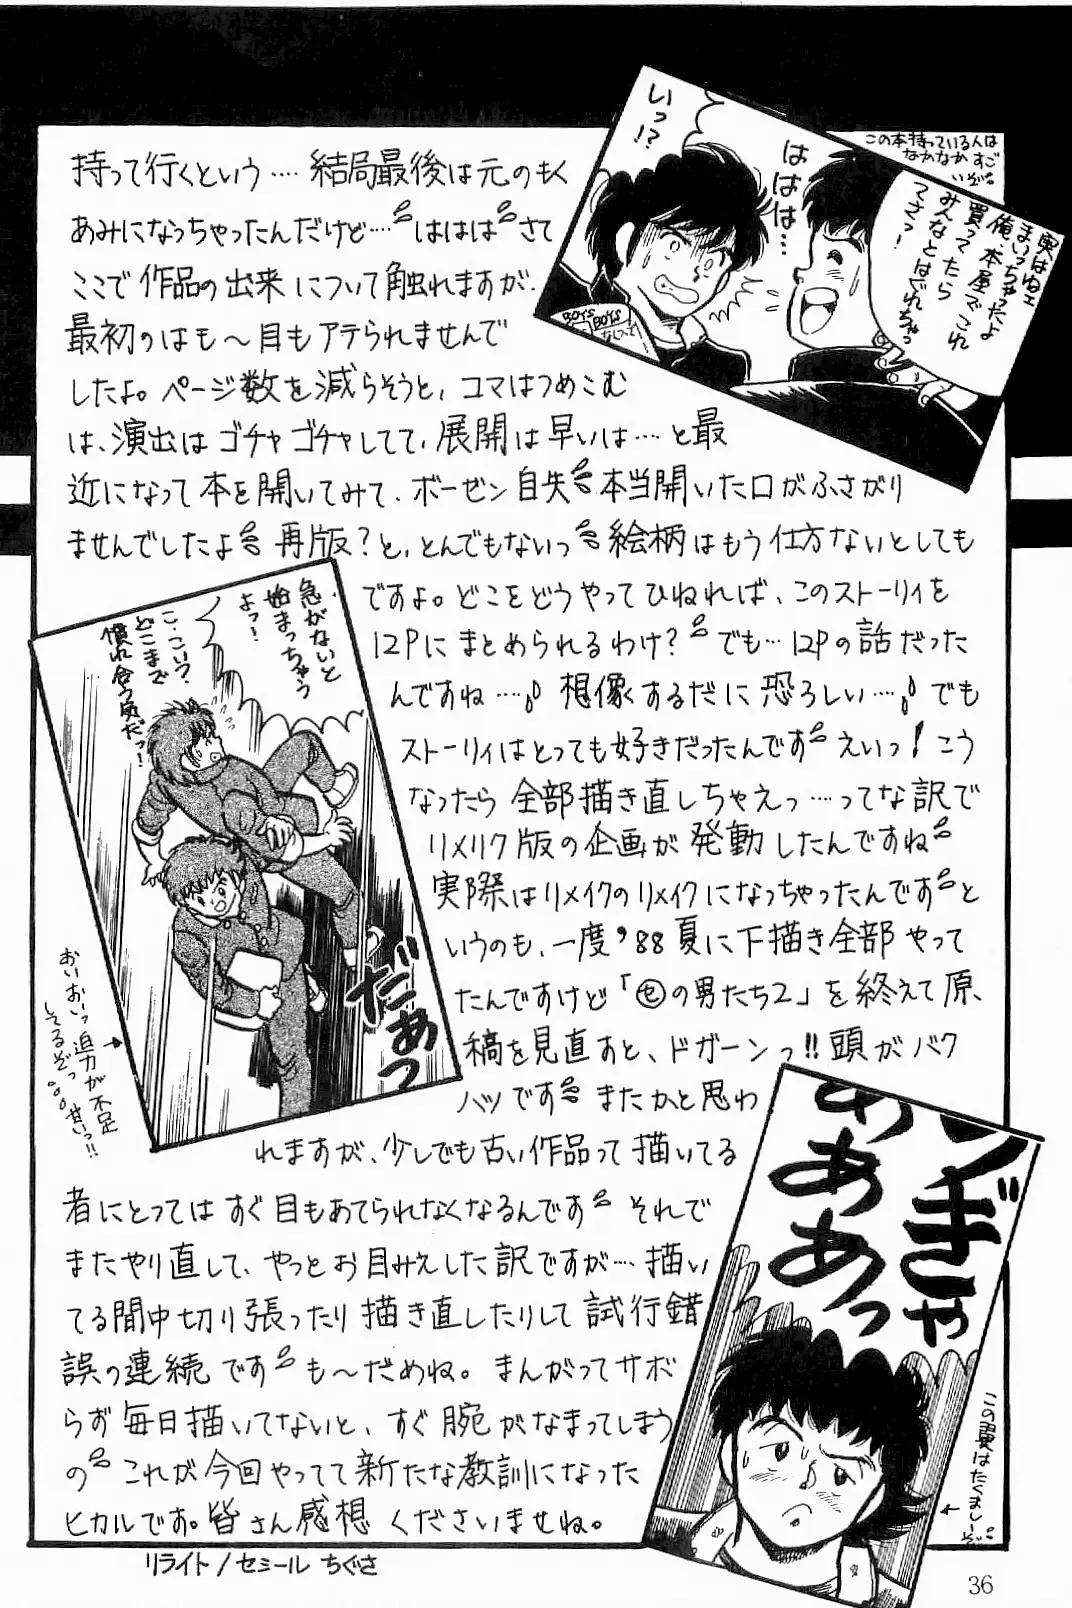 いっ!?
ははは…
この本持っている人は
なかなかすご
いぞ。
実はねェ
まいっちゃったよ
俺、本屋でこれ
買ってたら
みんなとはぐれちゃっ
てさっ!
BOYS
BOYS
持って行くという‥‥結局最後は元のもく
あみになっちゃったんだけど‥‥ははは さて
ここで作品の出来について触れますが、
最初のはも〜目もアテられませんで
したよ。ページ数を減らそうと、コマはつめこむ
は、演出はゴチャゴチャしてて、展開は早いは…と最
近になって本を開いてみて、ボーゼン自失 本当開いた口がふさがり
ませんでしたよ 再版?と、とんでもないっ 絵柄はもう仕方ないとしても
ですよ。どこをどうやってひねれば、このストーリィを
12Pにまとめられるわけ? でも…12Pの話だった
んですね‥‥ 想像するだに恐ろしい‥‥ でも
ストーリィはとっても好きだったんです えいっ!こう
なったら全部描き直しちゃえっ‥‥ってな訳で
リメイク版の企画が発動したんですね
実際はリメイクのリメイクになっちゃったんです と
いうのも、一度'88夏に下描き全部やって
たんですけど「㋲の男たち2」を終えて原、
稿を見直すと、ドガーンっ!!頭がバク
ハツです またかと思わ
れますが、少しでも古い作品って描いてる
者にとってはすぐ目もあてられなくなるんです それで
またやり直して、やっとお目みえした訳ですが‥‥描い
てる間中切り張ったり描き直したりして試行錯
誤の連続です も〜だめね。まんがってサボ
らず毎日描いてないと、すぐ腕がなまってしまう
の これが今回やってて新たな教訓になった
ヒカルです。皆さん感想くださいませね。
急がないと
始まっちゃう
よっ!
こ、こいつ、
どこまで
慣れ合う気だっ!
だあっ
おいおいっ迫力が不足
してるぞっ。せいっ!!
ンぎゃ
ああああっ
この眉はたくましーぞ
リライト/セミール ちぐさ
36